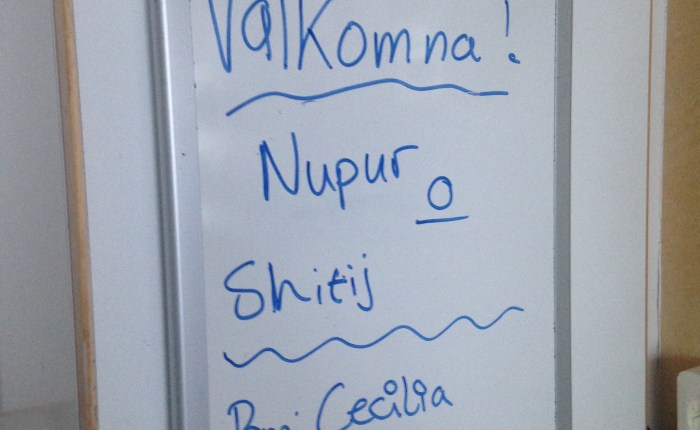 Välkomna!
Nupur
o
Shitij
Cecilia